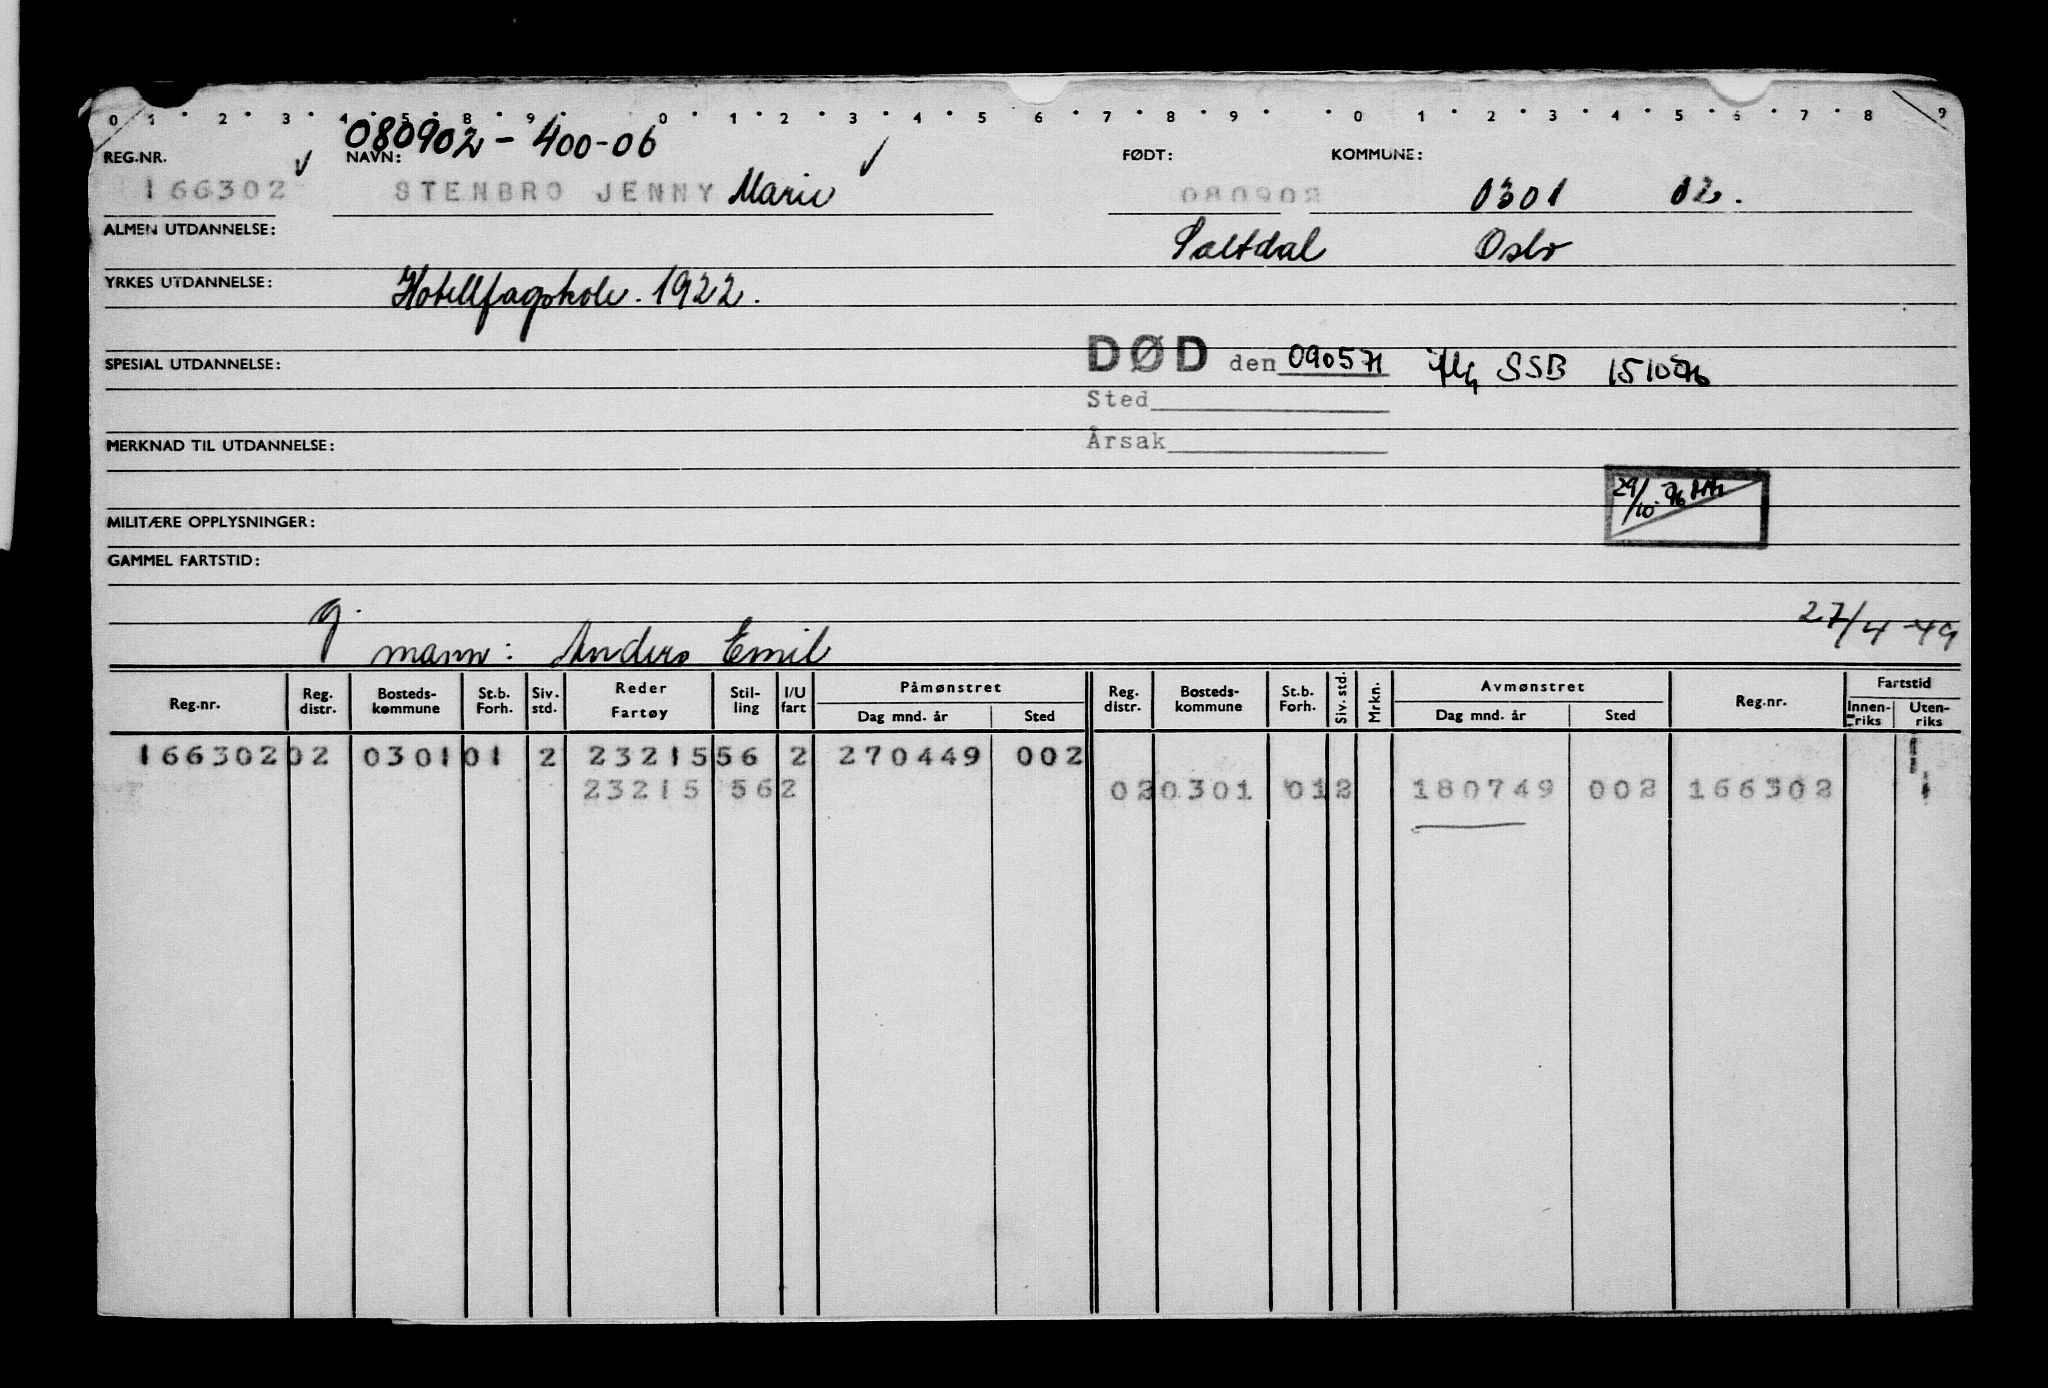 0 1 2 3 4 5 8 9 0 1 2 3 4 5 6 7 8 9 0 1 2 3 4 5 6 7 8 9
080902-400-06
REG.NR. NAVN: FØDT: KOMMUNE:
166302 STENBRO JENNY Marie 080902 0301 02.
ALMEN UTDANNELSE: Saltdal Oslo
YRKES UTDANNELSE: Hotellfagskole. 1922.
DØD den 090571 iflg SSB 151076
SPESIAL UTDANNELSE:
Sted
MERKNAD TIL UTDANNELSE: Årsak
29/10. 76
MILITÆRE OPPLYSNINGER:
GAMMEL FARTSTID:
g. 27/4-49
mann: Anders Emil
Reg.nr. Reg. distr. Bosteds-kommune St.b. Forh. Siv. std. Reder Fartøy Stil-ling I/U fart Påmønstret Dag mnd. år Sted Reg. distr. Bosteds-kommune St.b. Forh. Siv. std. Mrkn. Avmønstret Dag mnd. år Sted Reg.nr. Fartstid Innen-riks Uten-riks
166302 02 0301 01 2 23215 56 2 270449 002
23215 562 02 0301 01 2 180749 002 166302